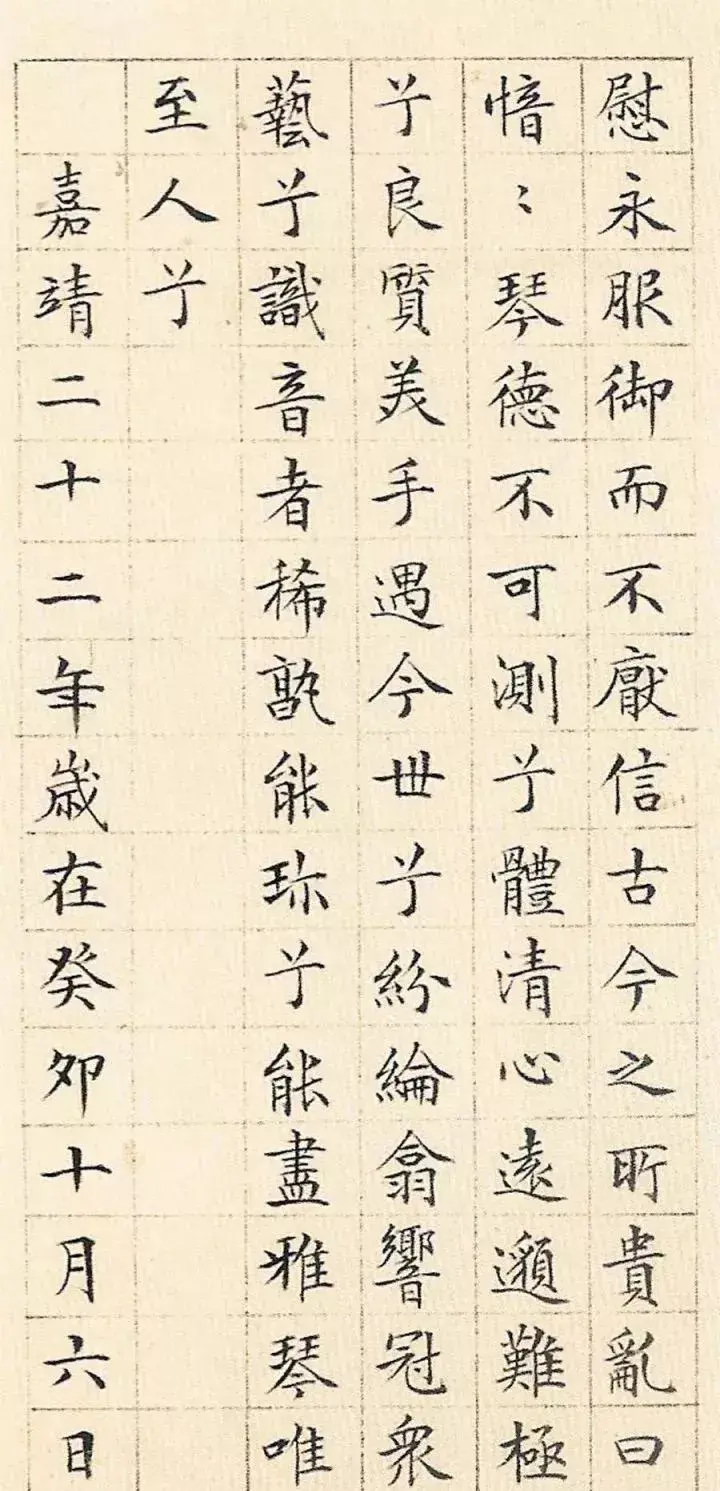 慰永服御而不厭信古今之所貴亂曰
愔〻琴德不可測兮體清心遠邈難極
兮良質美手遇今世兮紛綸翕響冠衆
藝兮識音者稀孰能珎兮能盡雅琴唯
至人兮
嘉靖二十二年歲在癸夘十月六日